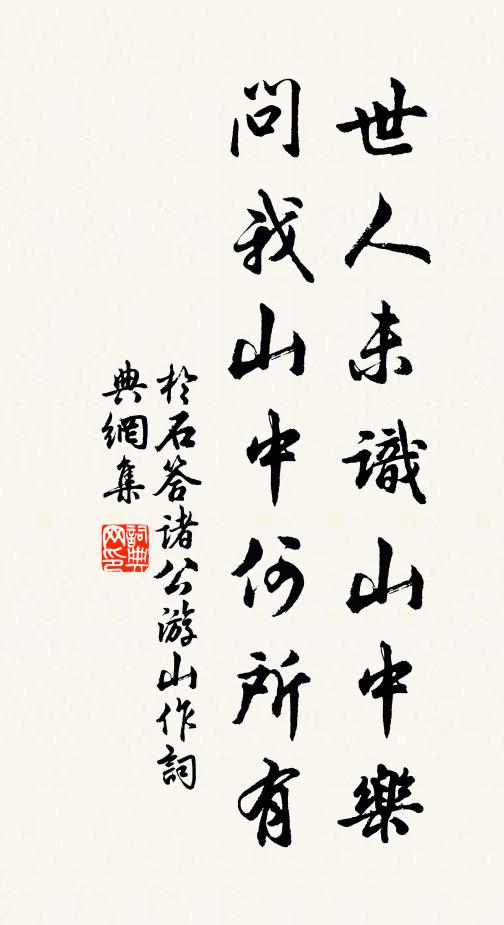 世人未識山中樂
問我山中何所有
於石答諸公游山作詞
典網集
詞典
网印